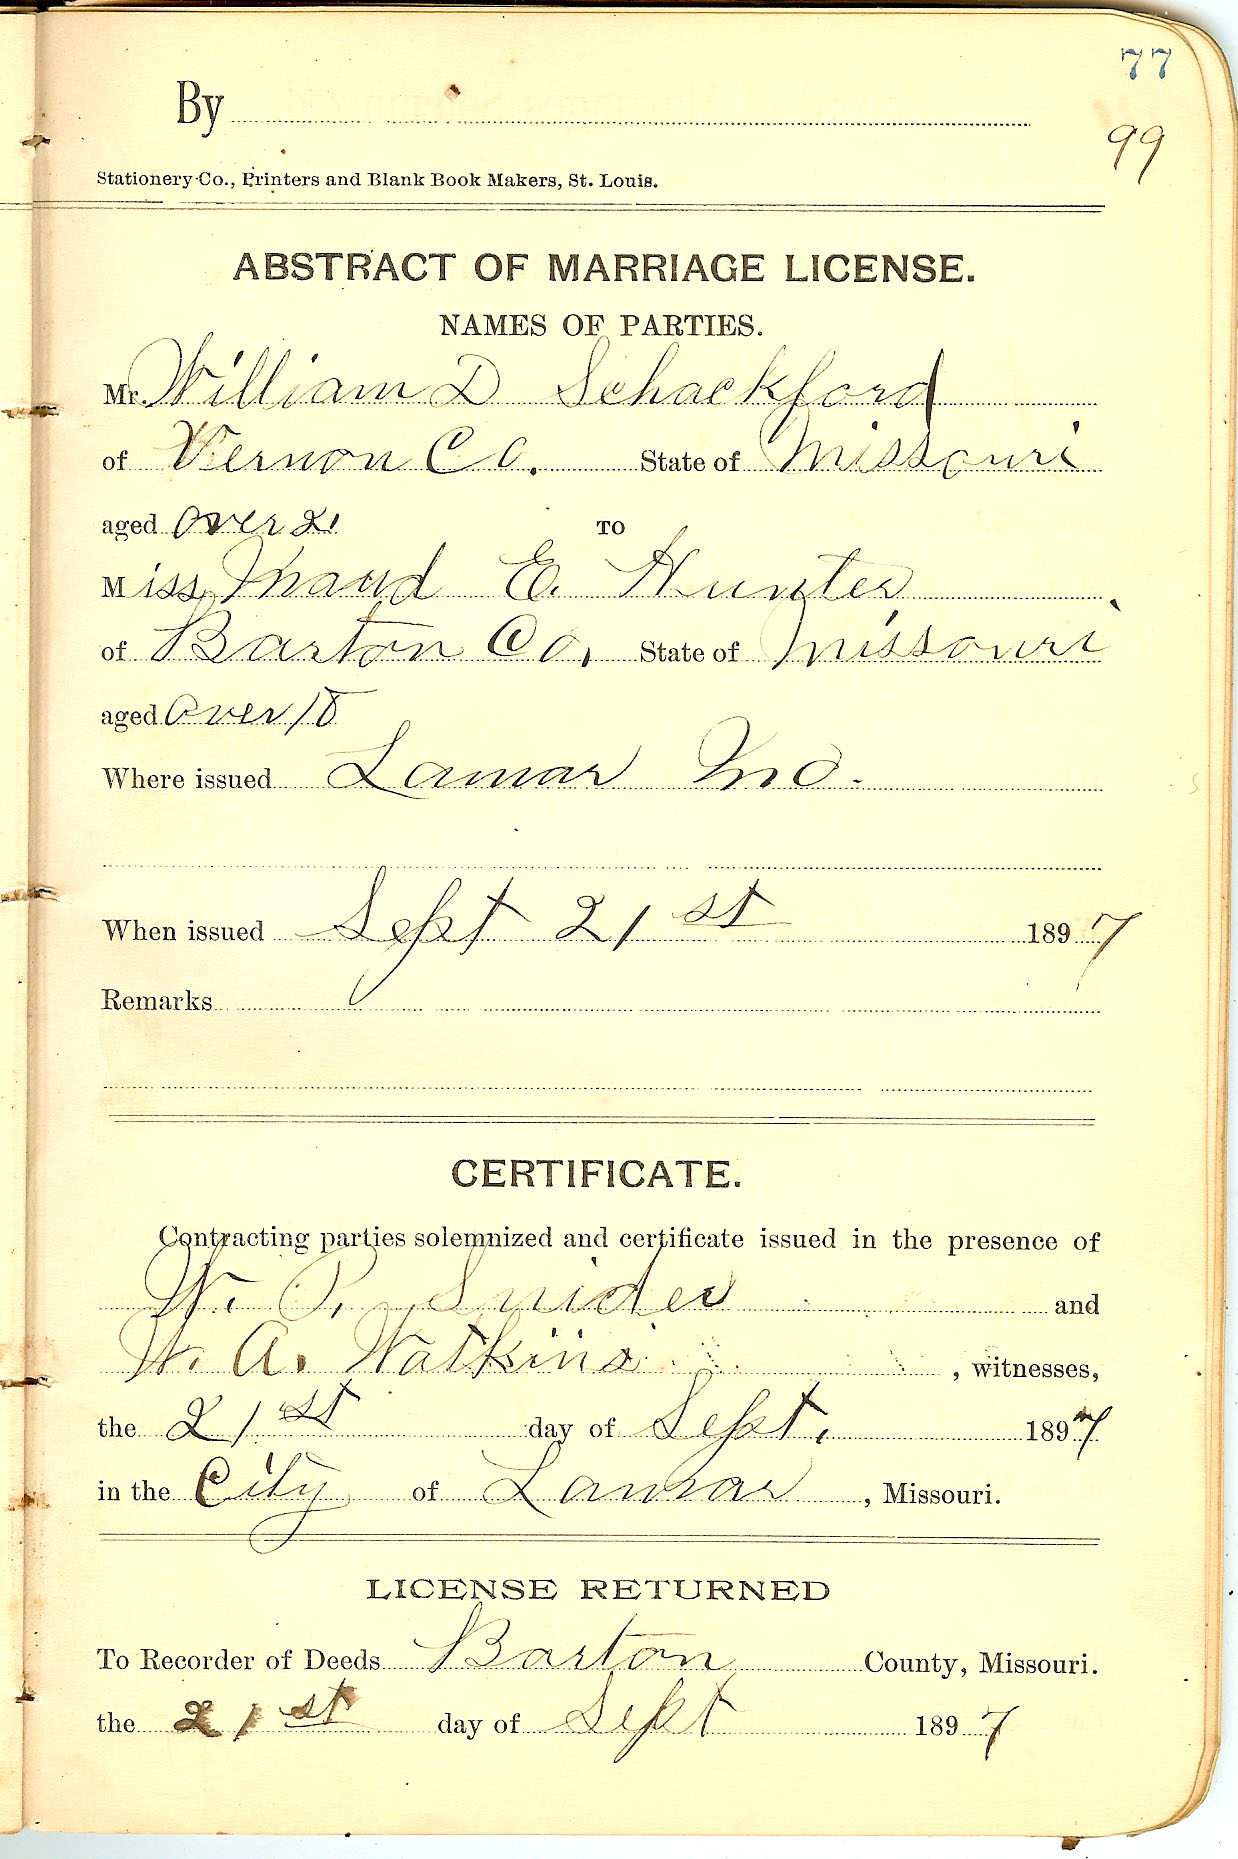 77
By
99
Stationery Co., Printers and Blank Book Makers, St. Louis.
ABSTRACT OF MARRIAGE LICENSE.
NAMES OF PARTIES.
Mr. William D Schackford
of Vernon Co. State of Missouri
aged over 21 TO
Miss Maud E. Hunter
of Barton Co, State of Missouri
aged over 18
Where issued Lamar Mo.
When issued Sept 21st 1897
Remarks
CERTIFICATE.
Contracting parties solemnized and certificate issued in the presence of
W. P. Snider and
W. A. Watkins , witnesses,
the 21st day of Sept. 1897
in the City of Lamar , Missouri.
LICENSE RETURNED
To Recorder of Deeds Barton County, Missouri.
the 21st day of Sept 1897